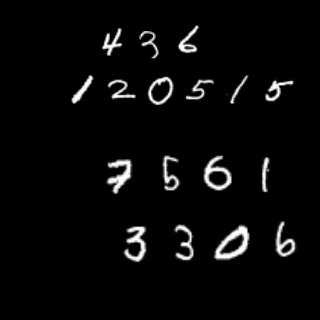 4 3 6
1 2 0 5 1 5
7 5 6 1
3 3 0 6